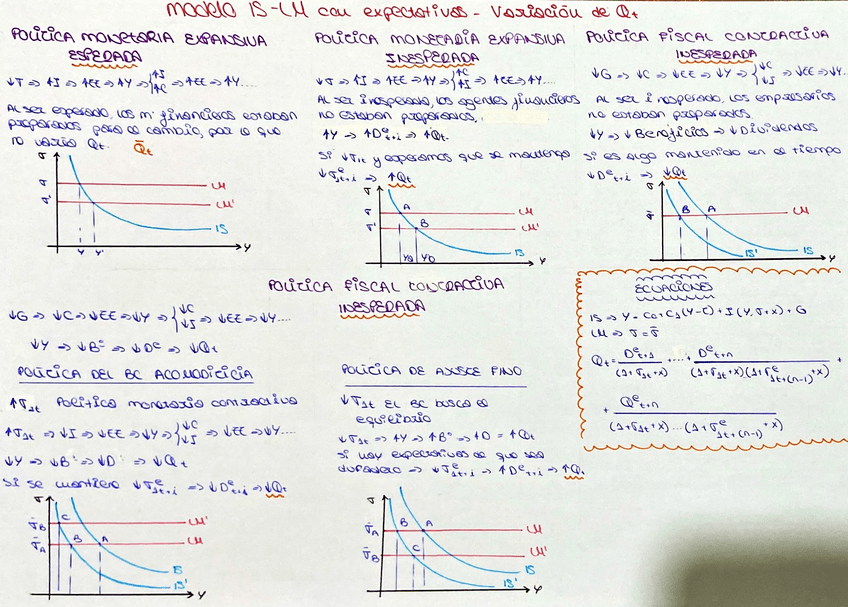 modelo IS-LM con expectativas - Variación de Qt
POLÍTICA MONETARIA EXPANSIVA
ESPERADA
↓r ⇒ ↑I ⇒ ↑EE ⇒ ↑Y ⇒ {↑I ↑C ⇒ ↑EE ⇒ ↑Y....
Al ser esperado, los m. financieros estaban
preparados para el cambio, por lo que
no varía Qt. Q̄t
r
r
r'
LM
LM'
IS
Y Y'
Y
POLÍTICA MONETARIA EXPANSIVA
INESPERADA
↓r ⇒ ↑I ⇒ ↑EE ⇒ ↑Y ⇒ {↑C ↑I ⇒ ↑EE ⇒ ↑Y....
Al ser inesperado, los agentes financieros
no estaban preparados.
↑Y ⇒ ↑D^e t+i ⇒ ↑Qt.
Si ↓r1t y esperamos que se mantenga
↓r^e 1t+i ⇒ ↑Qt
r
r
r'
A
B
LM
LM'
IS
Ya Yb
Y
POLÍTICA FISCAL CONTRACTIVA
INESPERADA
↓G ⇒ ↓C ⇒ ↓EE ⇒ ↓Y ⇒ {↓C ↓I ⇒ ↓EE ⇒ ↓Y....
Al ser inesperado, los empresarios
no estaban preparados.
↓Y ⇒ ↓Beneficios ⇒ ↓Dividendos
Si es algo mantenido en el tiempo
↓D^e t+i ⇒ ↓Qt
r
r̄
B A
LM
IS'
IS
Y
POLÍTICA FISCAL CONTRACTIVA
INESPERADA
↓G ⇒ ↓C ⇒ ↓EE ⇒ ↓Y ⇒ {↓C ↓I ⇒ ↓EE ⇒ ↓Y....
↓Y ⇒ ↓B^e ⇒ ↓D^e ⇒ ↓Qt
POLÍTICA DEL BC ACOMODATICIA
↑r1t Política monetaria contractiva
↑r1t ⇒ ↓I ⇒ ↓EE ⇒ ↓Y ⇒ {↓C ↓I ⇒ ↓EE ⇒ ↓Y....
↓Y ⇒ ↓B ⇒ ↓D ⇒ ↓Qt
Si se mantiene ↓r^e 1t+i ⇒ ↓D^e t+i ⇒ ↓Qt
r
r̄B
r̄A
C
B
A
LM'
LM
IS
IS'
Y
POLÍTICA DE AJUSTE FINO
↓r1t El BC busca el
equilibrio
↓r1t ⇒ ↑Y ⇒ ↑B^e ⇒ ↑D = ↑Qt
Si hay expectativas de que sea
duradero ⇒ ↓r^e 1t+i ⇒ ↑D^e t+i ⇒ ↑Qt
r
r̄A
r̄B
B
A
C
LM
LM'
IS
IS'
Y
ECUACIONES
IS ⇒ Y = C0 + C1(Y-T) + I(Y, r+x) + G
LM ⇒ r = r̄
Qt = D^e t+1 / (1+r1t+x) + ..... + D^e t+n / (1+r1t+x)(1+r^e 1t+(n-1)+x) +
+ Q^e t+n / (1+r1t+x)...(1+r^e 1t+(n-1)+x)